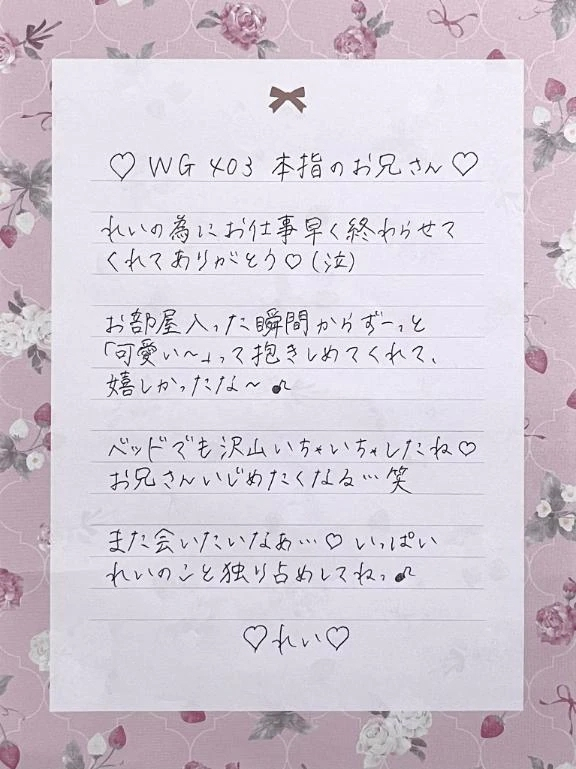 ♡ WG 403 本指のお兄さん ♡
れいの為にお仕事早く終わらせて
くれてありがとう♡(泣)
お部屋入った瞬間からずーっと
「可愛い〜」って抱きしめてくれて、
嬉しかったな〜♪
ベッドでも沢山いちゃいちゃしたね♡
お兄さんいじめたくなる…笑
また会いたいなぁ…♡ いっぱい
れいのこと独り占めしてねっ♪
♡れい♡